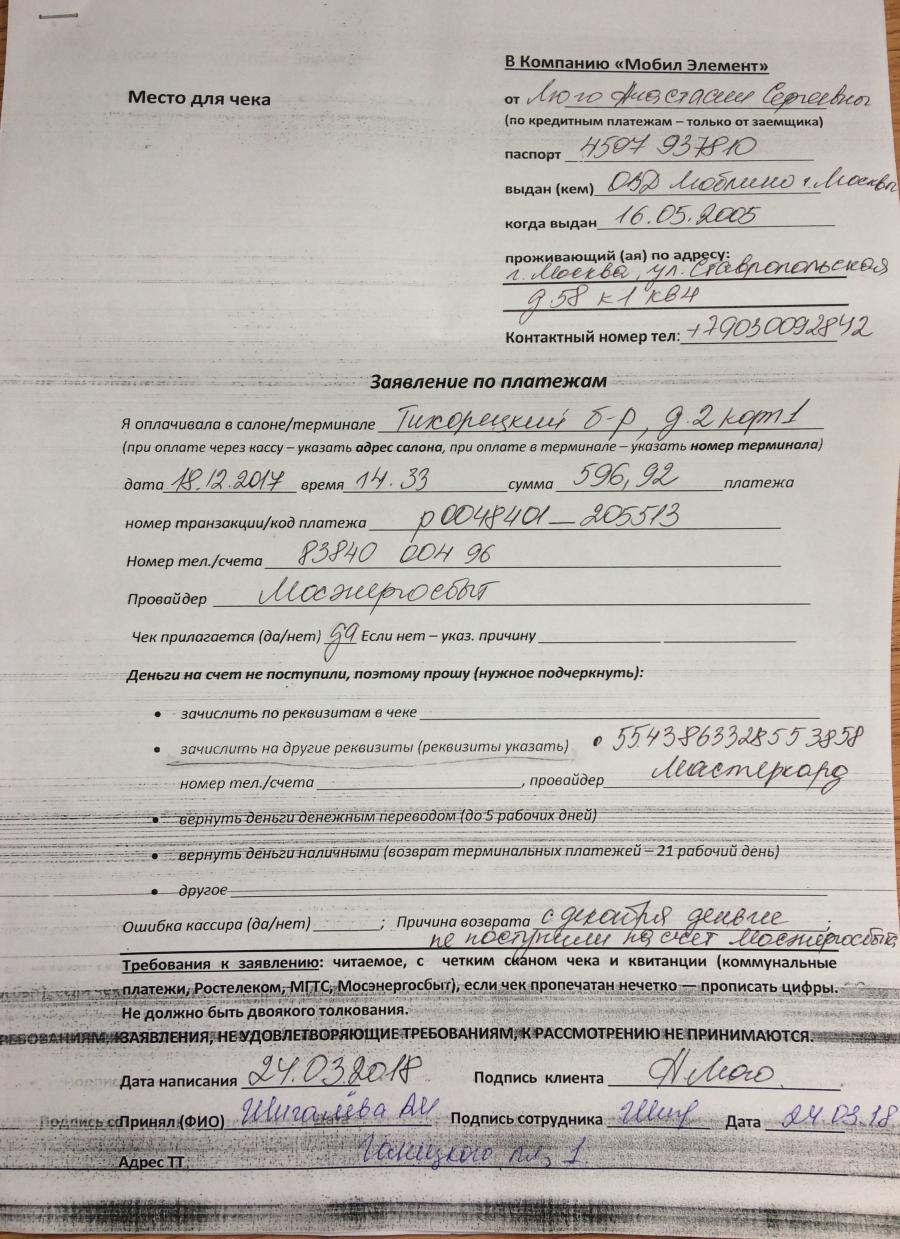 В Компанию «Мобил Элемент»
Место для чека
от Люго Анастасии Сергеевны
(по кредитным платежам – только от заемщика)
паспорт 4507 937810
выдан (кем) ОВД Люблино г. Москвы
когда выдан 16.05.2005
проживающий (ая) по адресу:
г. Москва, ул. Ставропольская
д 58 к 1 кв 4
Контактный номер тел: +79030092842
Заявление по платежам
Я оплачивал в салоне/терминале Тихорецкий б-р, д. 2 корп 1
(при оплате через кассу – указать адрес салона, при оплате в терминале – указать номер терминала)
дата 18.12.2017 время 14.33 сумма 596,92 платежа
номер транзакции/код платежа р0048401_205513
Номер тел./счета 83840 004 96
Провайдер Мосэнергосбыт
Чек прилагается (да/нет) да Если нет – указ. причину
Деньги на счет не поступили, поэтому прошу (нужное подчеркнуть):
• зачислить по реквизитам в чеке
• зачислить на другие реквизиты (реквизиты указать) • 5543863328553858
номер тел./счета , провайдер Мастеркард
• вернуть деньги денежным переводом (до 5 рабочих дней)
• вернуть деньги наличными (возврат терминальных платежей – 21 рабочий день)
• другое
Ошибка кассира (да/нет) ; Причина возврата с декабря деньги
не поступили на счет Мосэнергосбыт
Требования к заявлению: читаемое, с четким сканом чека и квитанции (коммунальные
платежи, Ростелеком, МГТС, Мосэнергосбыт), если чек пропечатан нечетко — прописать цифры.
Не должно быть двоякого толкования.
ЗАЯВЛЕНИЯ, НЕ УДОВЛЕТВОРЯЮЩИЕ ТРЕБОВАНИЯМ, К РАССМОТРЕНИЮ НЕ ПРИНИМАЮТСЯ.
Дата написания 24.03.2018 Подпись клиента АЛюго
Принял (ФИО) Шигалёва АИ Подпись сотрудника Шиг Дата 24.03.18
Адрес ТТ пл, 1